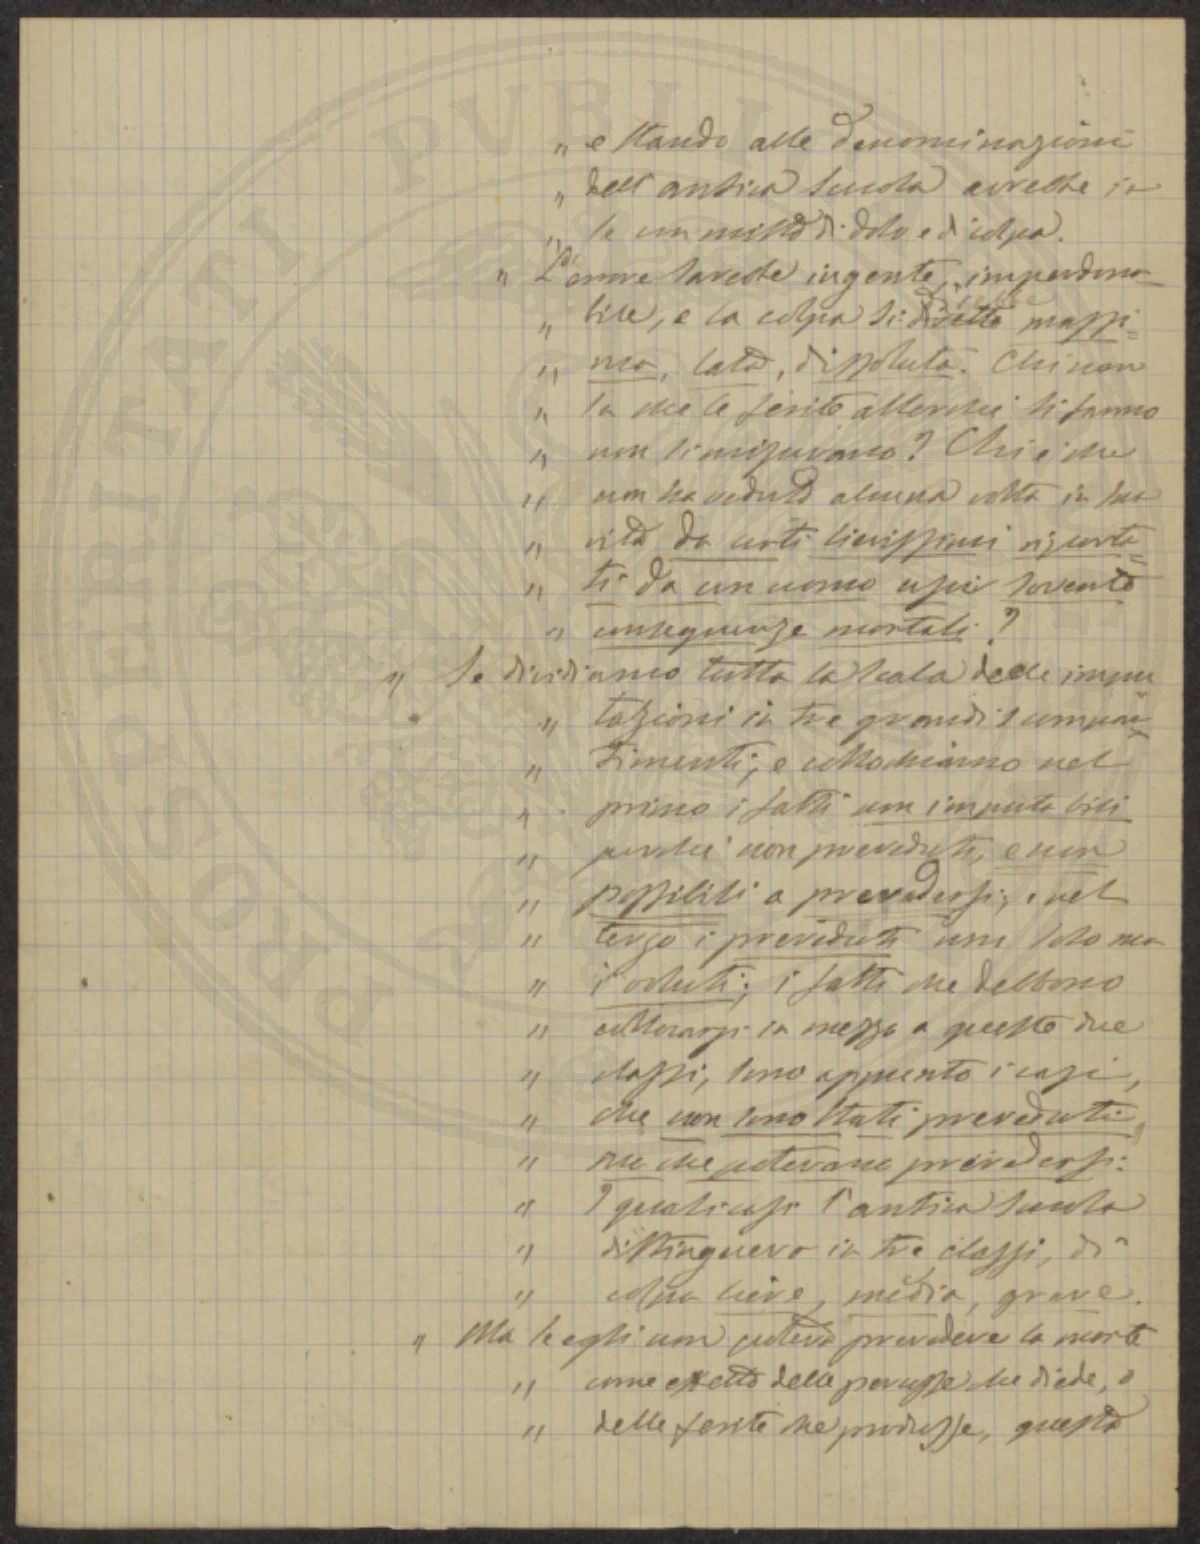 PROSPERITATI PUBLI
„ e stando alle denominazioni
„ dell'antica Scuola avrebbe in
„ se un misto di dolo e di colpa.
„ L'errore sarebbe ingente, imperdona-
„ bile, e la colpa si direbbe massi=
„ ma, lata, dissoluta. Chi non
„ sa che le ferite allorchè si fanno
„ non si misurano? Chi è che
„ non ha veduto alcuna volta in sua
„ vita da urti lievissimi riporta=
„ ti da un uomo uscir sovente
„ conseguenze mortali?
„ Se dividiamo tutta la scala delle impu
„ tazioni in tre grandi scompar=
„ timenti; e collochiamo nel
„ primo i fatti non imputabili
„ perchè non preveduti, e non
„ possibili a prevedersi; e nel
„ terzo i preveduti non solo ma
„ i voluti; i fatti che debbono
„ collocarsi in mezzo a queste due
„ classi, sono appunto i casi,
„ che non sono stati preveduti
„ ma che potevano prevedersi:
„ I quali casi l'antica Scuola
„ distingueva in tre classi, di
„ colpa lieve, media, grave.
„ Ma se egli non poteva prevedere la morte
„ come effetto delle percosse che diede, o
„ delle ferite che produsse, questo